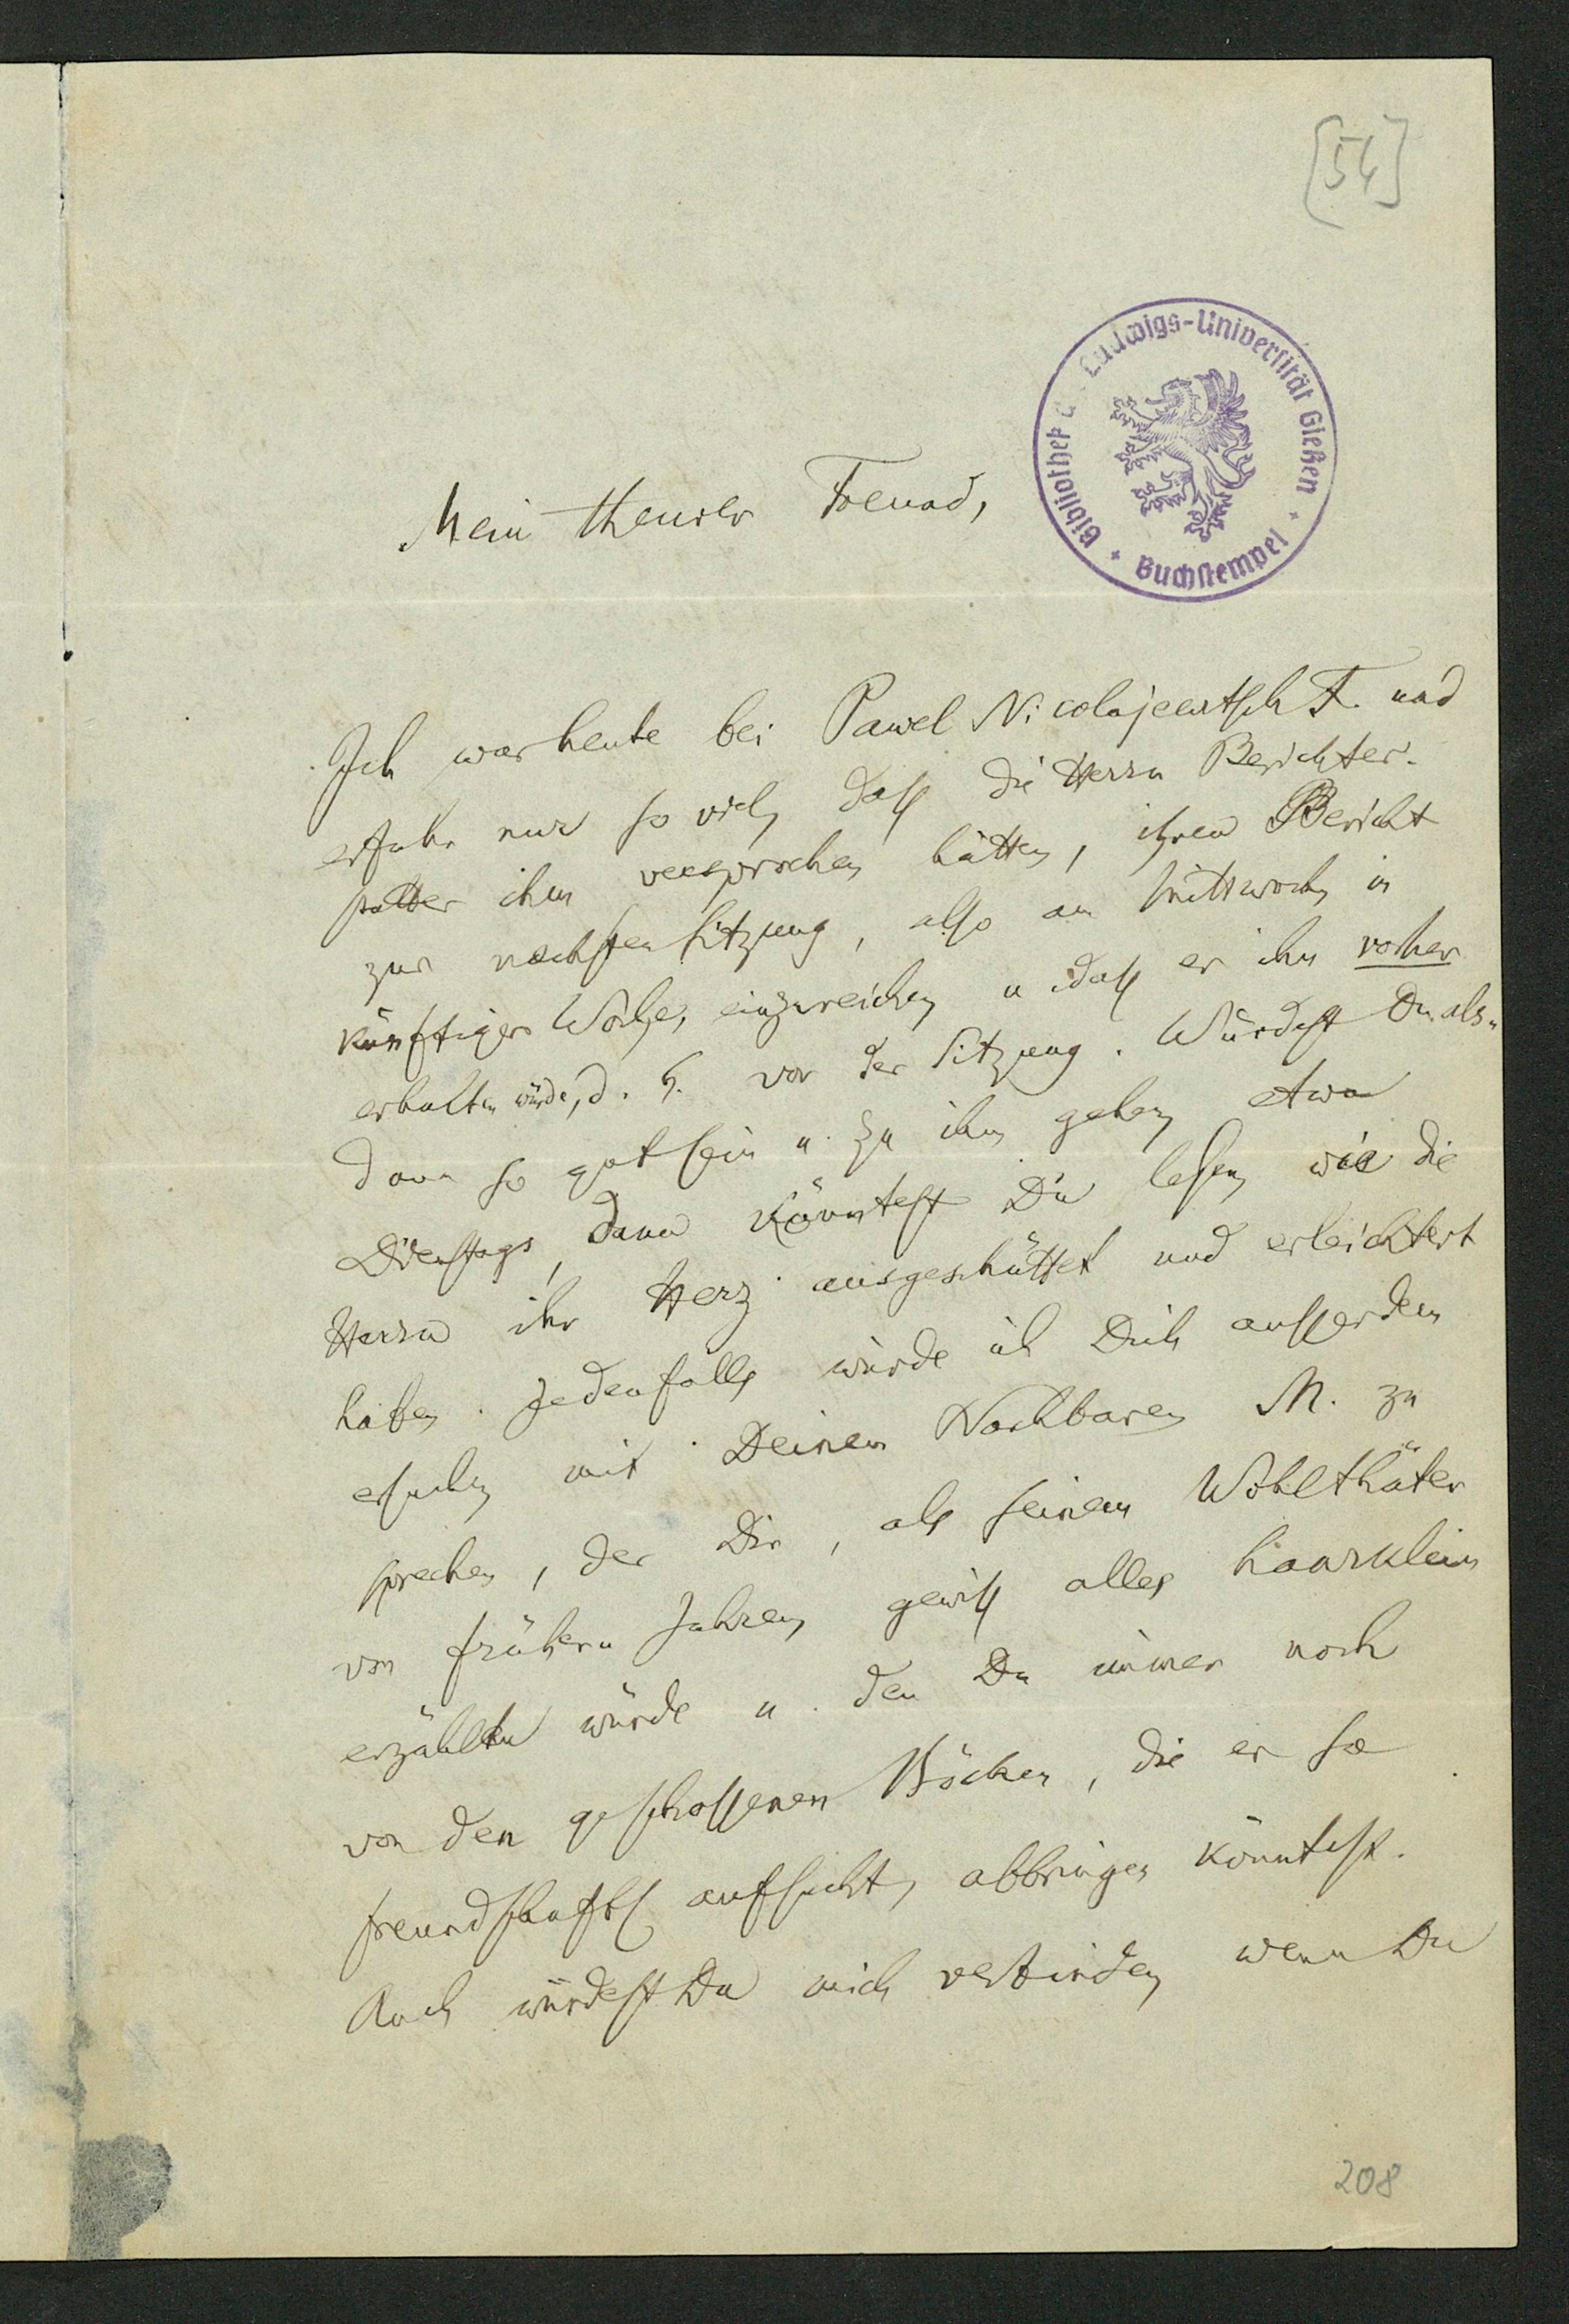 [54]
Bibliothek d. Ludwigs-Universität Gießen
Buchstempel
Mein theurer Freund,
Ich war heute bei Pawel Nicolajewitsch F. und
erfuhr nur so viel, daß die Herrn Berichter-
statter ihm versprochen hätten, ihren Bericht
zur nächsten Sitzung, also am Mittwoch, in
künftiger Woche, einzureichen u. daß er ihn vorher
erhalten würde, d. h. vor der Sitzung. Würdest Du als-
dann so gut sein u. zu ihm gehen, etwa
Dienstags, dann könntest Du lesen, wie die
Herrn ihr Herz ausgeschüttet und erleichtert
haben. Jedenfalls würde ich Dich ausserdem
ersuchen mit Deinem Nachbaren M. zu
sprechen, der Dir, als seinem Wohlthäter
von frühern Jahren, gewiß alles haarklein
erzählen würde u. den Du immer noch
von den geschossenen Böcken, die er so
freundschaftl. aufsucht, abbringen könntest.
Auch würdest Du mich verbinden, wenn Du
208